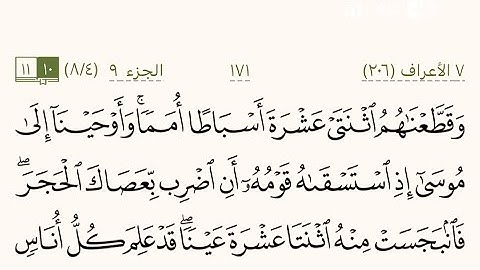 ٧ الأعراف (٢٠٦) ١٧١ الجزء ٩ (٨/٤) ١٠ ١١
وَقَطَّعْنَٰهُمُ ٱثْنَتَىْ عَشْرَةَ أَسْبَاطًا أُمَمًاۚ وَأَوْحَيْنَآ إِلَىٰ
مُوسَىٰٓ إِذِ ٱسْتَسْقَىٰهُ قَوْمُهُۥٓ أَنِ ٱضْرِب بِّعَصَاكَ ٱلْحَجَرَۖ
فَٱنۢبَجَسَتْ مِنْهُ ٱثْنَتَا عَشْرَةَ عَيْنًاۖ قَدْ عَلِمَ كُلُّ أُنَاسٍ